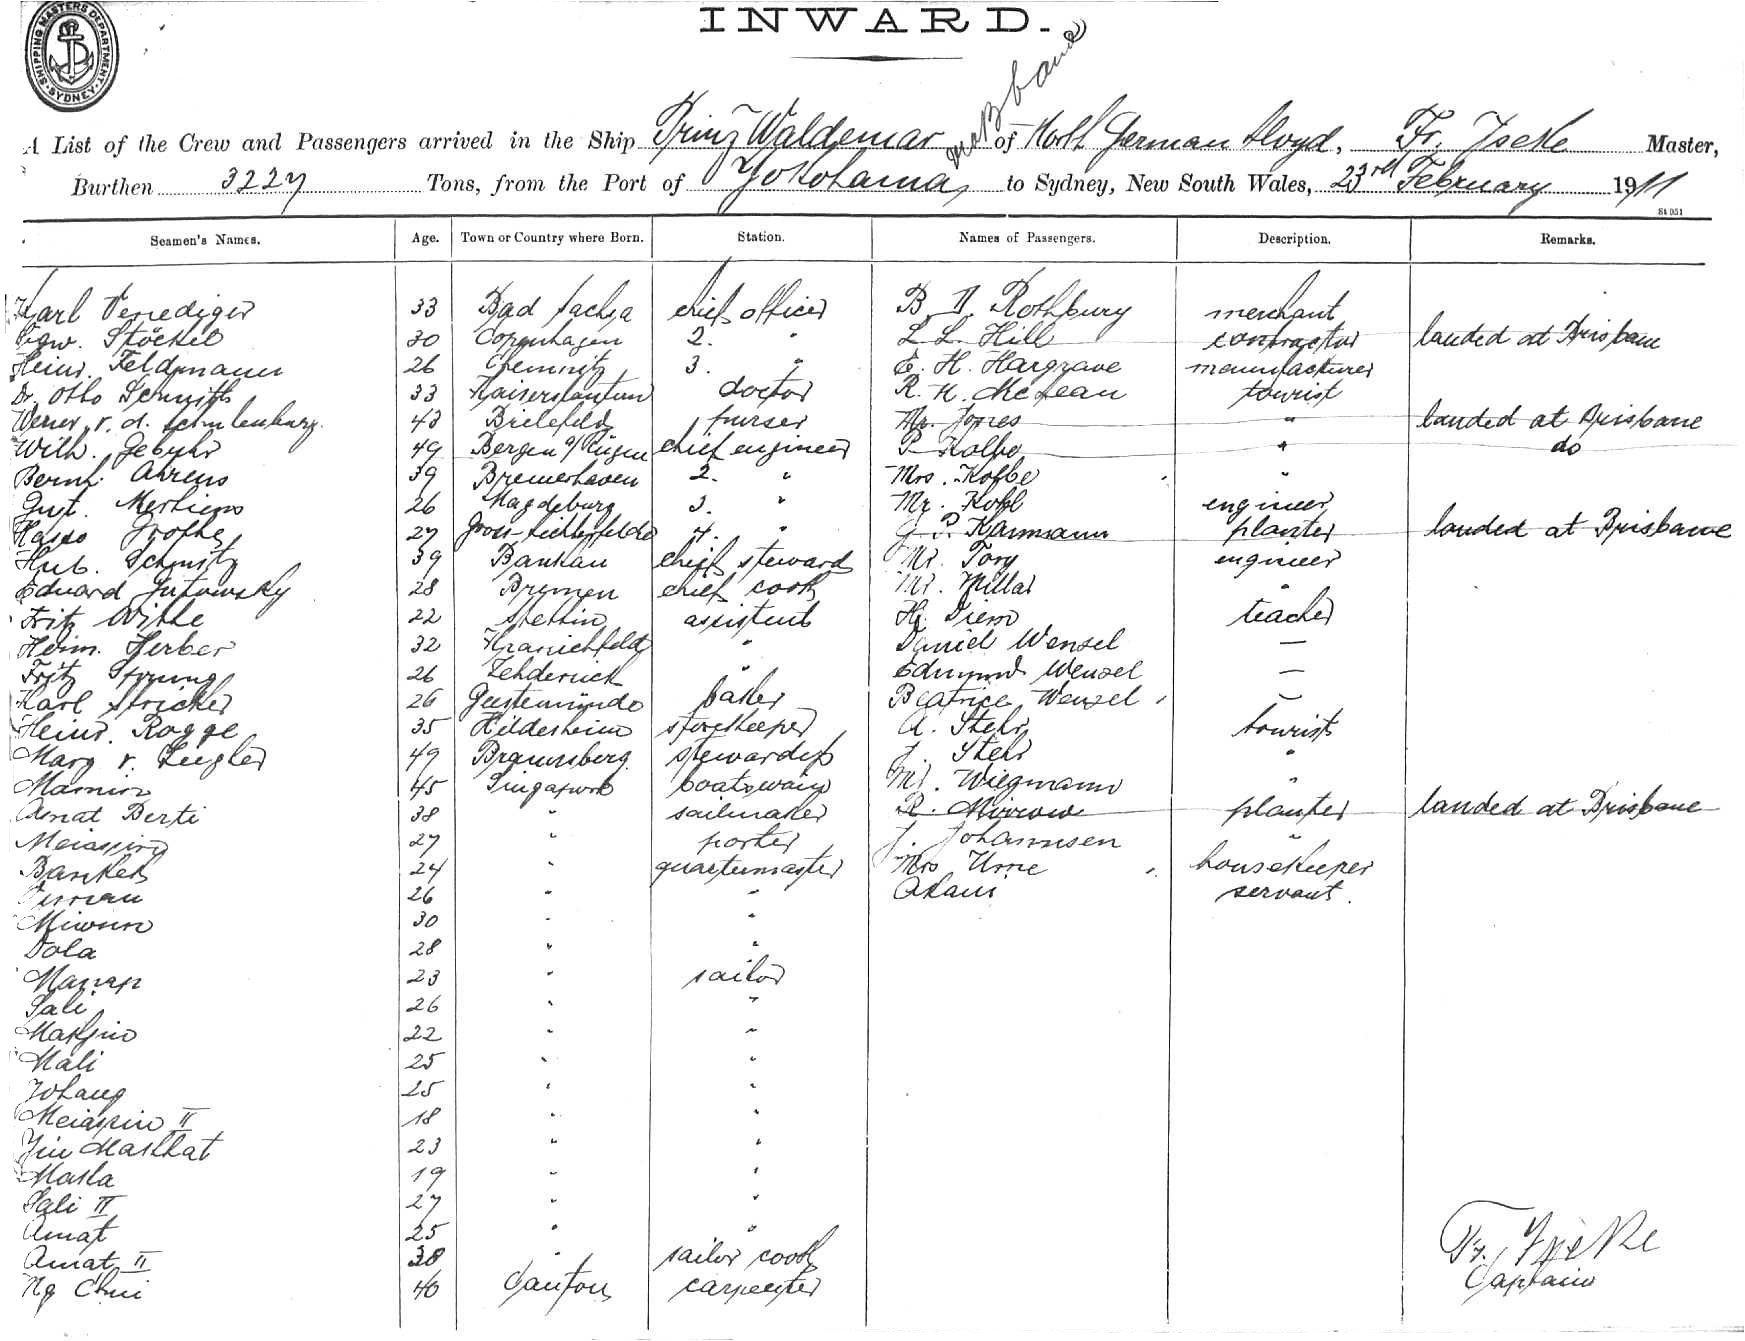 SHIPPING MASTERS DEPARTMENT SYDNEY
INWARD.
A List of the Crew and Passengers arrived in the Ship Prinz Waldemar of North German Lloyd, Fr. Iseke Master,
Brisbane
Burthen 3227 Tons, from the Port of Yokohama, to Sydney, New South Wales, 23rd February 1911
St 051
Seamen's Names. Age. Town or Country where Born. Station. Names of Passengers. Description. Remarks.
Karl Venediger 33 Bad Sachsa chief officer B. Rothbury merchant
Stöckel 30 Copenhagen 2. " L. L. Hill contractor landed at Brisbane
Heinr. Feldmann 26 Chemnitz 3. " E. H. Hargrave manufacturer
Dr. Otto Schmitz 33 Kaiserslautern doctor R. H. McLean tourist
Werner v. d. Schulenburg. 43 Bielefeld purser Mr. Jones " landed at Brisbane
Wilh. Gebuhr 49 Bergen a/Rügen chief engineer P. Kolbe " do
Bernh. Ahrens 39 Bremerhaven 2. " Mrs. Kolbe "
Gust. Mertiens 26 Magdeburg 3. " Mr. Kohl engineer
Hasso Grothe 27 Gross-Lichterfelde 4. " G. P. Karmann planter landed at Brisbane
Hub. Schmitz 39 Bankau chief steward Mr. Tory engineer
Eduard Gutowsky 28 Bremen chief cook Mr. Millar "
Fritz Witte 22 Stettin assistent Hg. Diem teacher
Heinr. Herber 32 Kranichfeld " Daniel Wensel —
Fritz Sprung 26 Zehdenick " Edmund Wenzel —
Karl Stricker 26 Geestemünde baker Beatrice Wenzel —
Heinr. Rogge 35 Hildesheim storekeeper A. Stehr tourist
Marg v. Zeigler 49 Braunsberg. stewardess J. Stehr "
Mamin 45 Singapore boatswain Mr. Wiegmann "
Amat Berti 38 " sailmaker R. Mirow planter landed at Brisbane
Meiassin 27 " porter J. Johannsen "
Banker 24 " quartermaster Mrs Urne housekeeper
26 " " Akaui servant.
Miwun 30 " "
Dola 28 " "
Manap 23 " sailor
Sali 26 " "
Masjin 22 " "
Mali 25 " "
25 " "
Meiassin II 18 " "
Maskat 23 " "
Masla 19 " "
Sali II 27 " "
Amat 25 " "
Amat II 38 " sailor cook
Ng Chui 40 Canton carpenter
Fr. Iseke
Captain